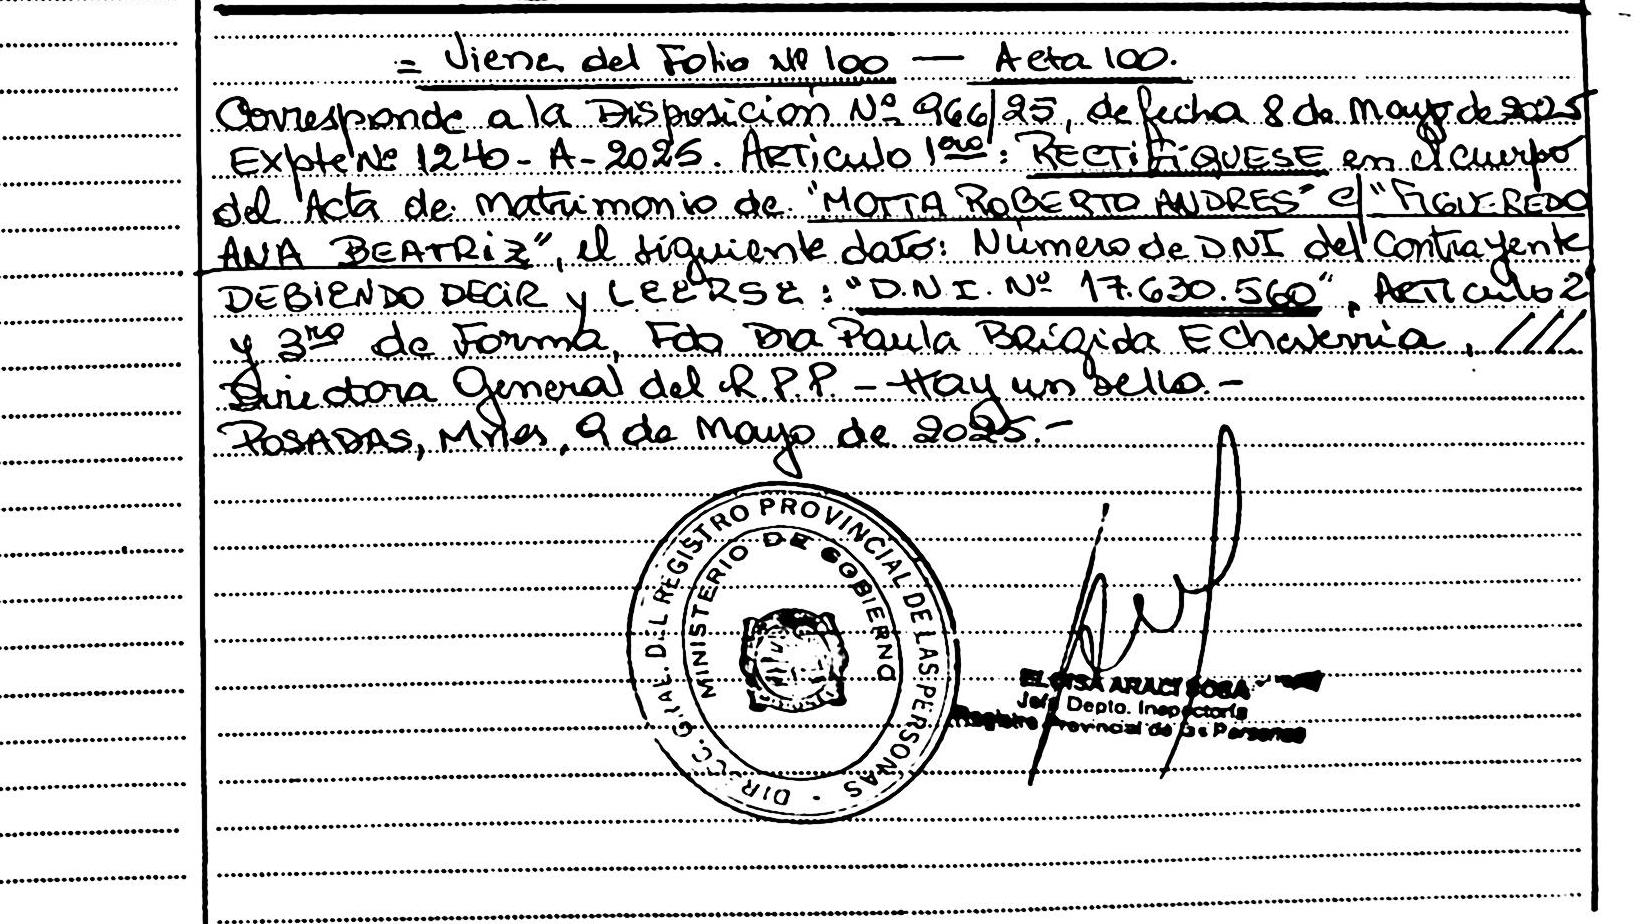 = Viene del Folio Nº 100 — Acta 100.
Corresponde a la Disposición Nº 966/25, de fecha 8 de Mayo de 2025
Expte Nº 1240-A-2025. Artículo 1ero: RECTIFÍQUESE en el cuerpo
del Acta de Matrimonio de "MOTTA ROBERTO ANDRES" c/ "FIGUEREDO
ANA BEATRIZ", el siguiente dato: Número de DNI del Contrayente
DEBIENDO DECIR y LEERSE: "D.N.I. Nº 17.630.560", Artículo 2
y 3ro de Forma, Fdo Dra Paula Brígida Echeverria, ///
Directora General del R.P.P. - Hay un sello.-
POSADAS, Mnes, 9 de Mayo de 2025.-
DIRECC. GRAL. DEL REGISTRO PROVINCIAL DE LAS PERSONAS
MINISTERIO DE GOBIERNO
ELOISA ARACI SOSA
Jefe Depto. Inspectoría
Registro Provincial de las Personas